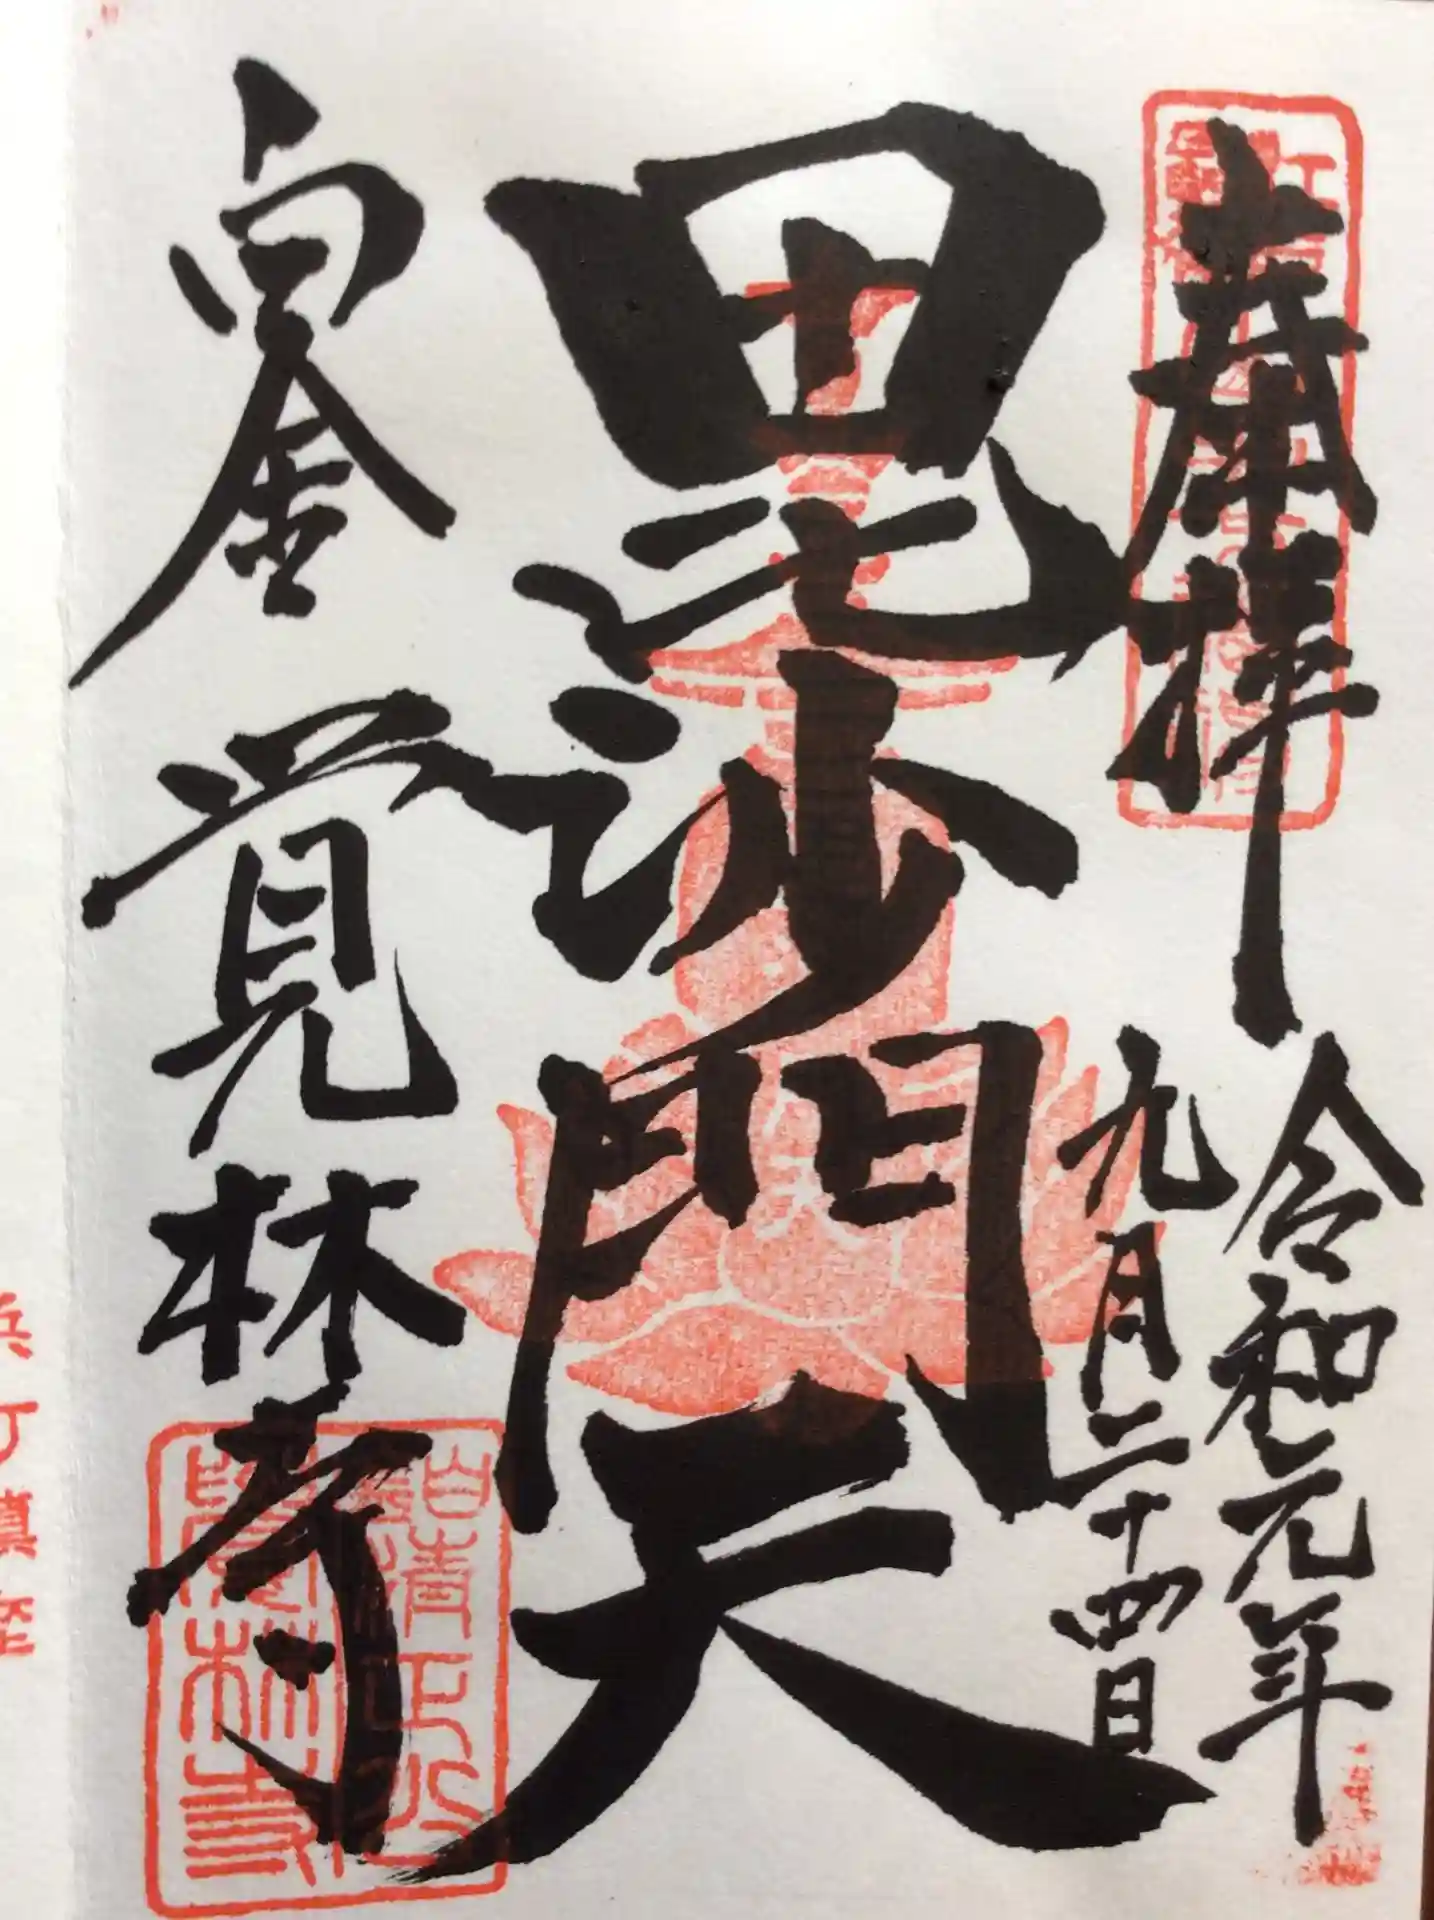 奉拝
令和元年
九月二十四日
毘沙門天
白金 覚林寺
覺林寺